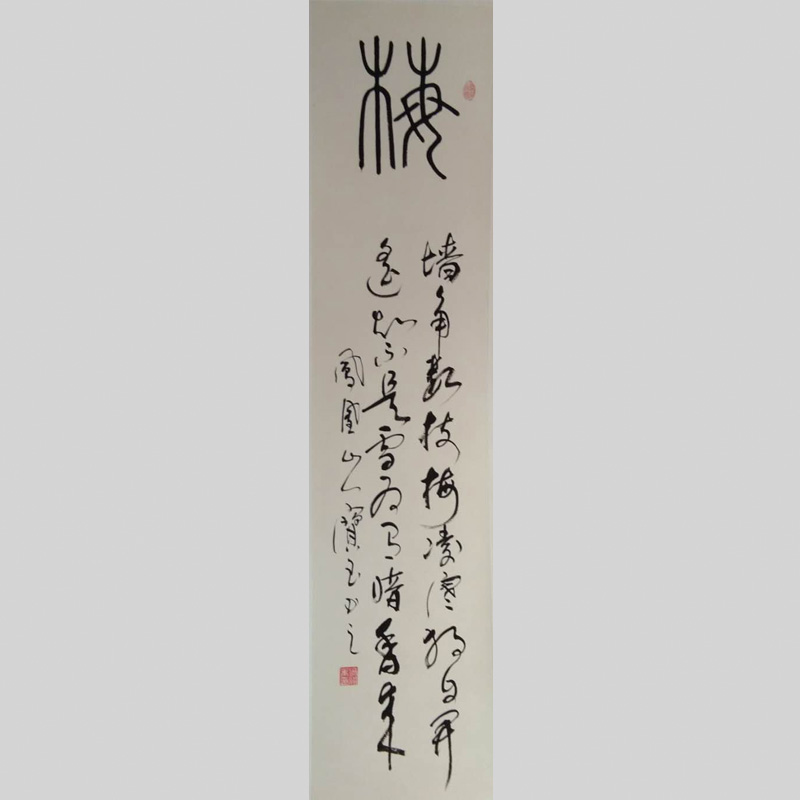 梅
墙角数枝梅凌寒独自开
遥知不是雪为有暗香来
鳳凰山人玉书之